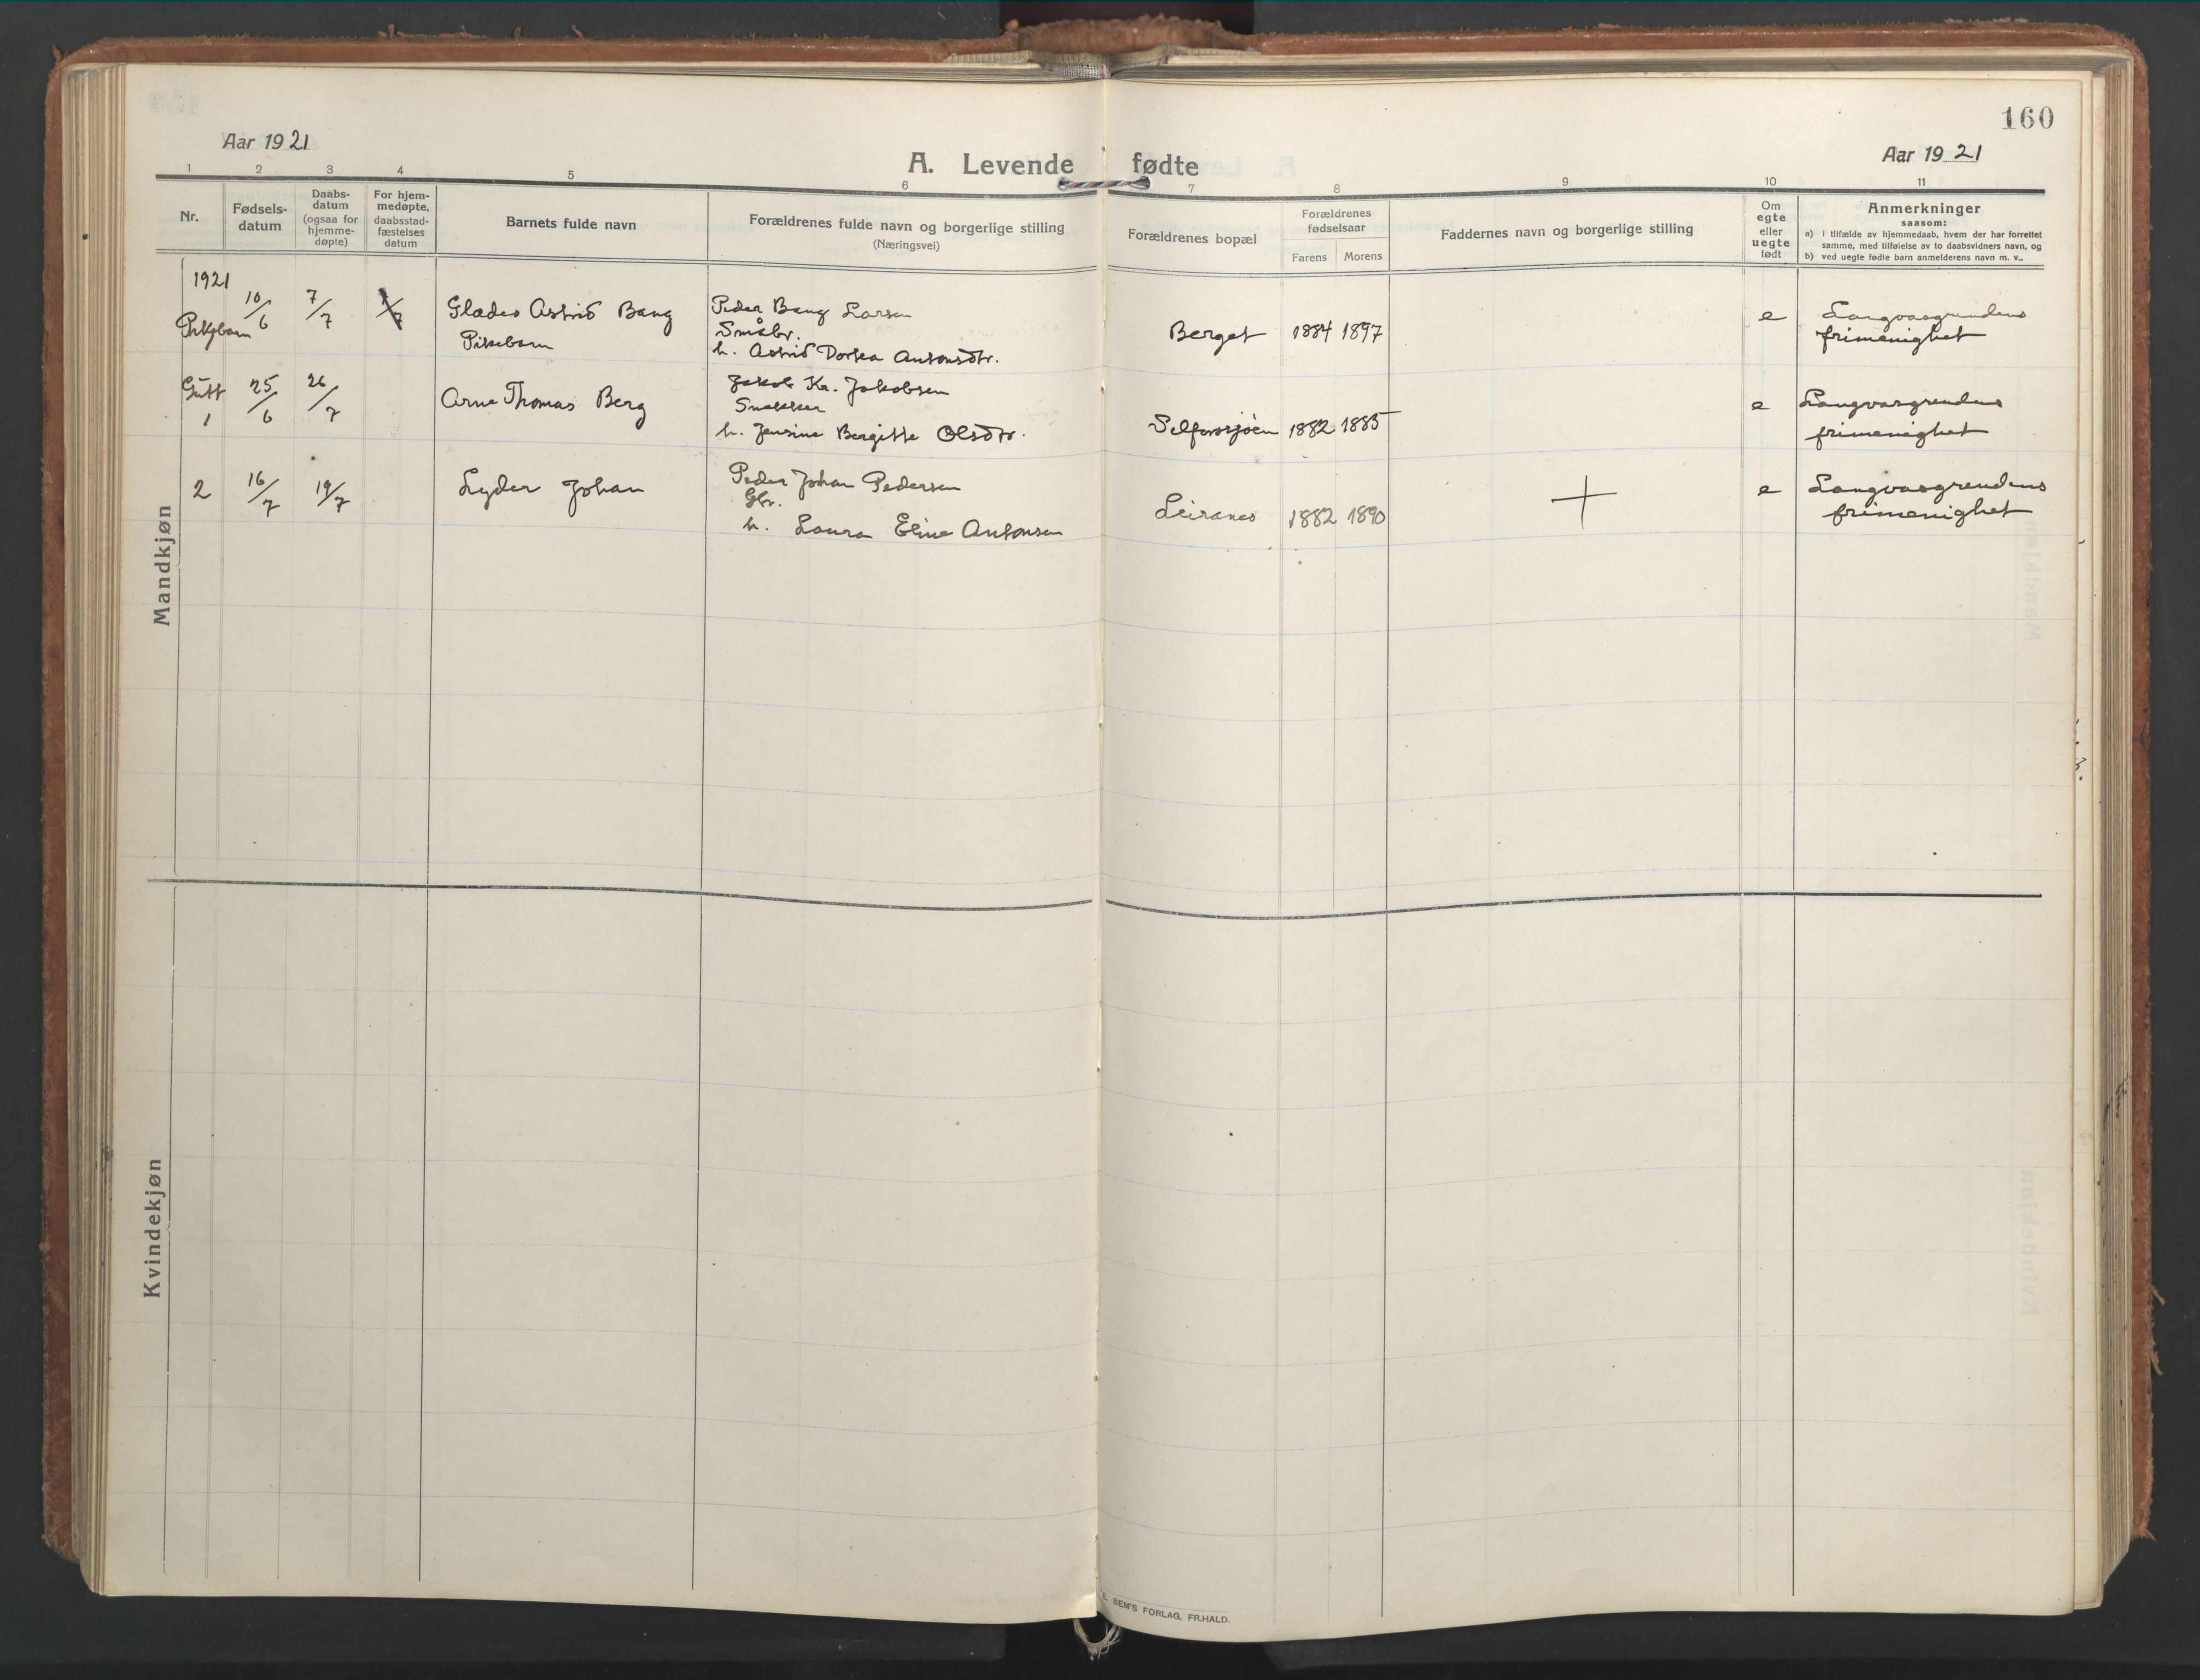 160
Aar 1921
A. Levende fødte
Aar 1921
1 2 3 4 5 6 7 8 9 10 11
Nr.
Fødsels-
datum
Daabs-
datum
(ogsaa for
hjemme-
døpte)
For hjem-
medøpte,
daabsstad-
fæstelses
datum
Barnets fulde navn
Forældrenes fulde navn og borgerlige stilling
(Næringsvei)
Forældrenes bopæl
Forældrenes
fødselsaar
Farens Morens
Faddernes navn og borgerlige stilling
Om
egte
eller
uegte
født
Anmerkninger
saasom:
a) i tilfælde av hjemmedaab, hvem der har forrettet
samme, med tilføielse av to daabsvidners navn, og
b) ved uegte fødte barn anmelderens navn m. v..
Mandkjøn
1921
Pikebarn 10/6 7/7
Glades Astrid Bang
Pikebarn
Peder Bang Larsen
Småbr.
h. Astrid Dortea Antonsdtr.
Berget 1884 1897 e
Langvasgrendens
frimenighet
Gutt
1 25/6 26/7
Arne Thomas Berg
Jakob Kr. Jakobsen
Snekker
h. Jensine Bergitte Olsdtr.
Selforssjøen 1882 1885 e
Langvasgrendens
frimenighet
2 16/7 19/7
Lyder Johan
Peder Johan Pedersen
Gbr.
h. Laura Eline Antonsen
Leiranes 1882 1890 + e
Langvasgrendens
frimenighet
Kvindekjøn
E. SEM'S FORLAG, FR.HALD.